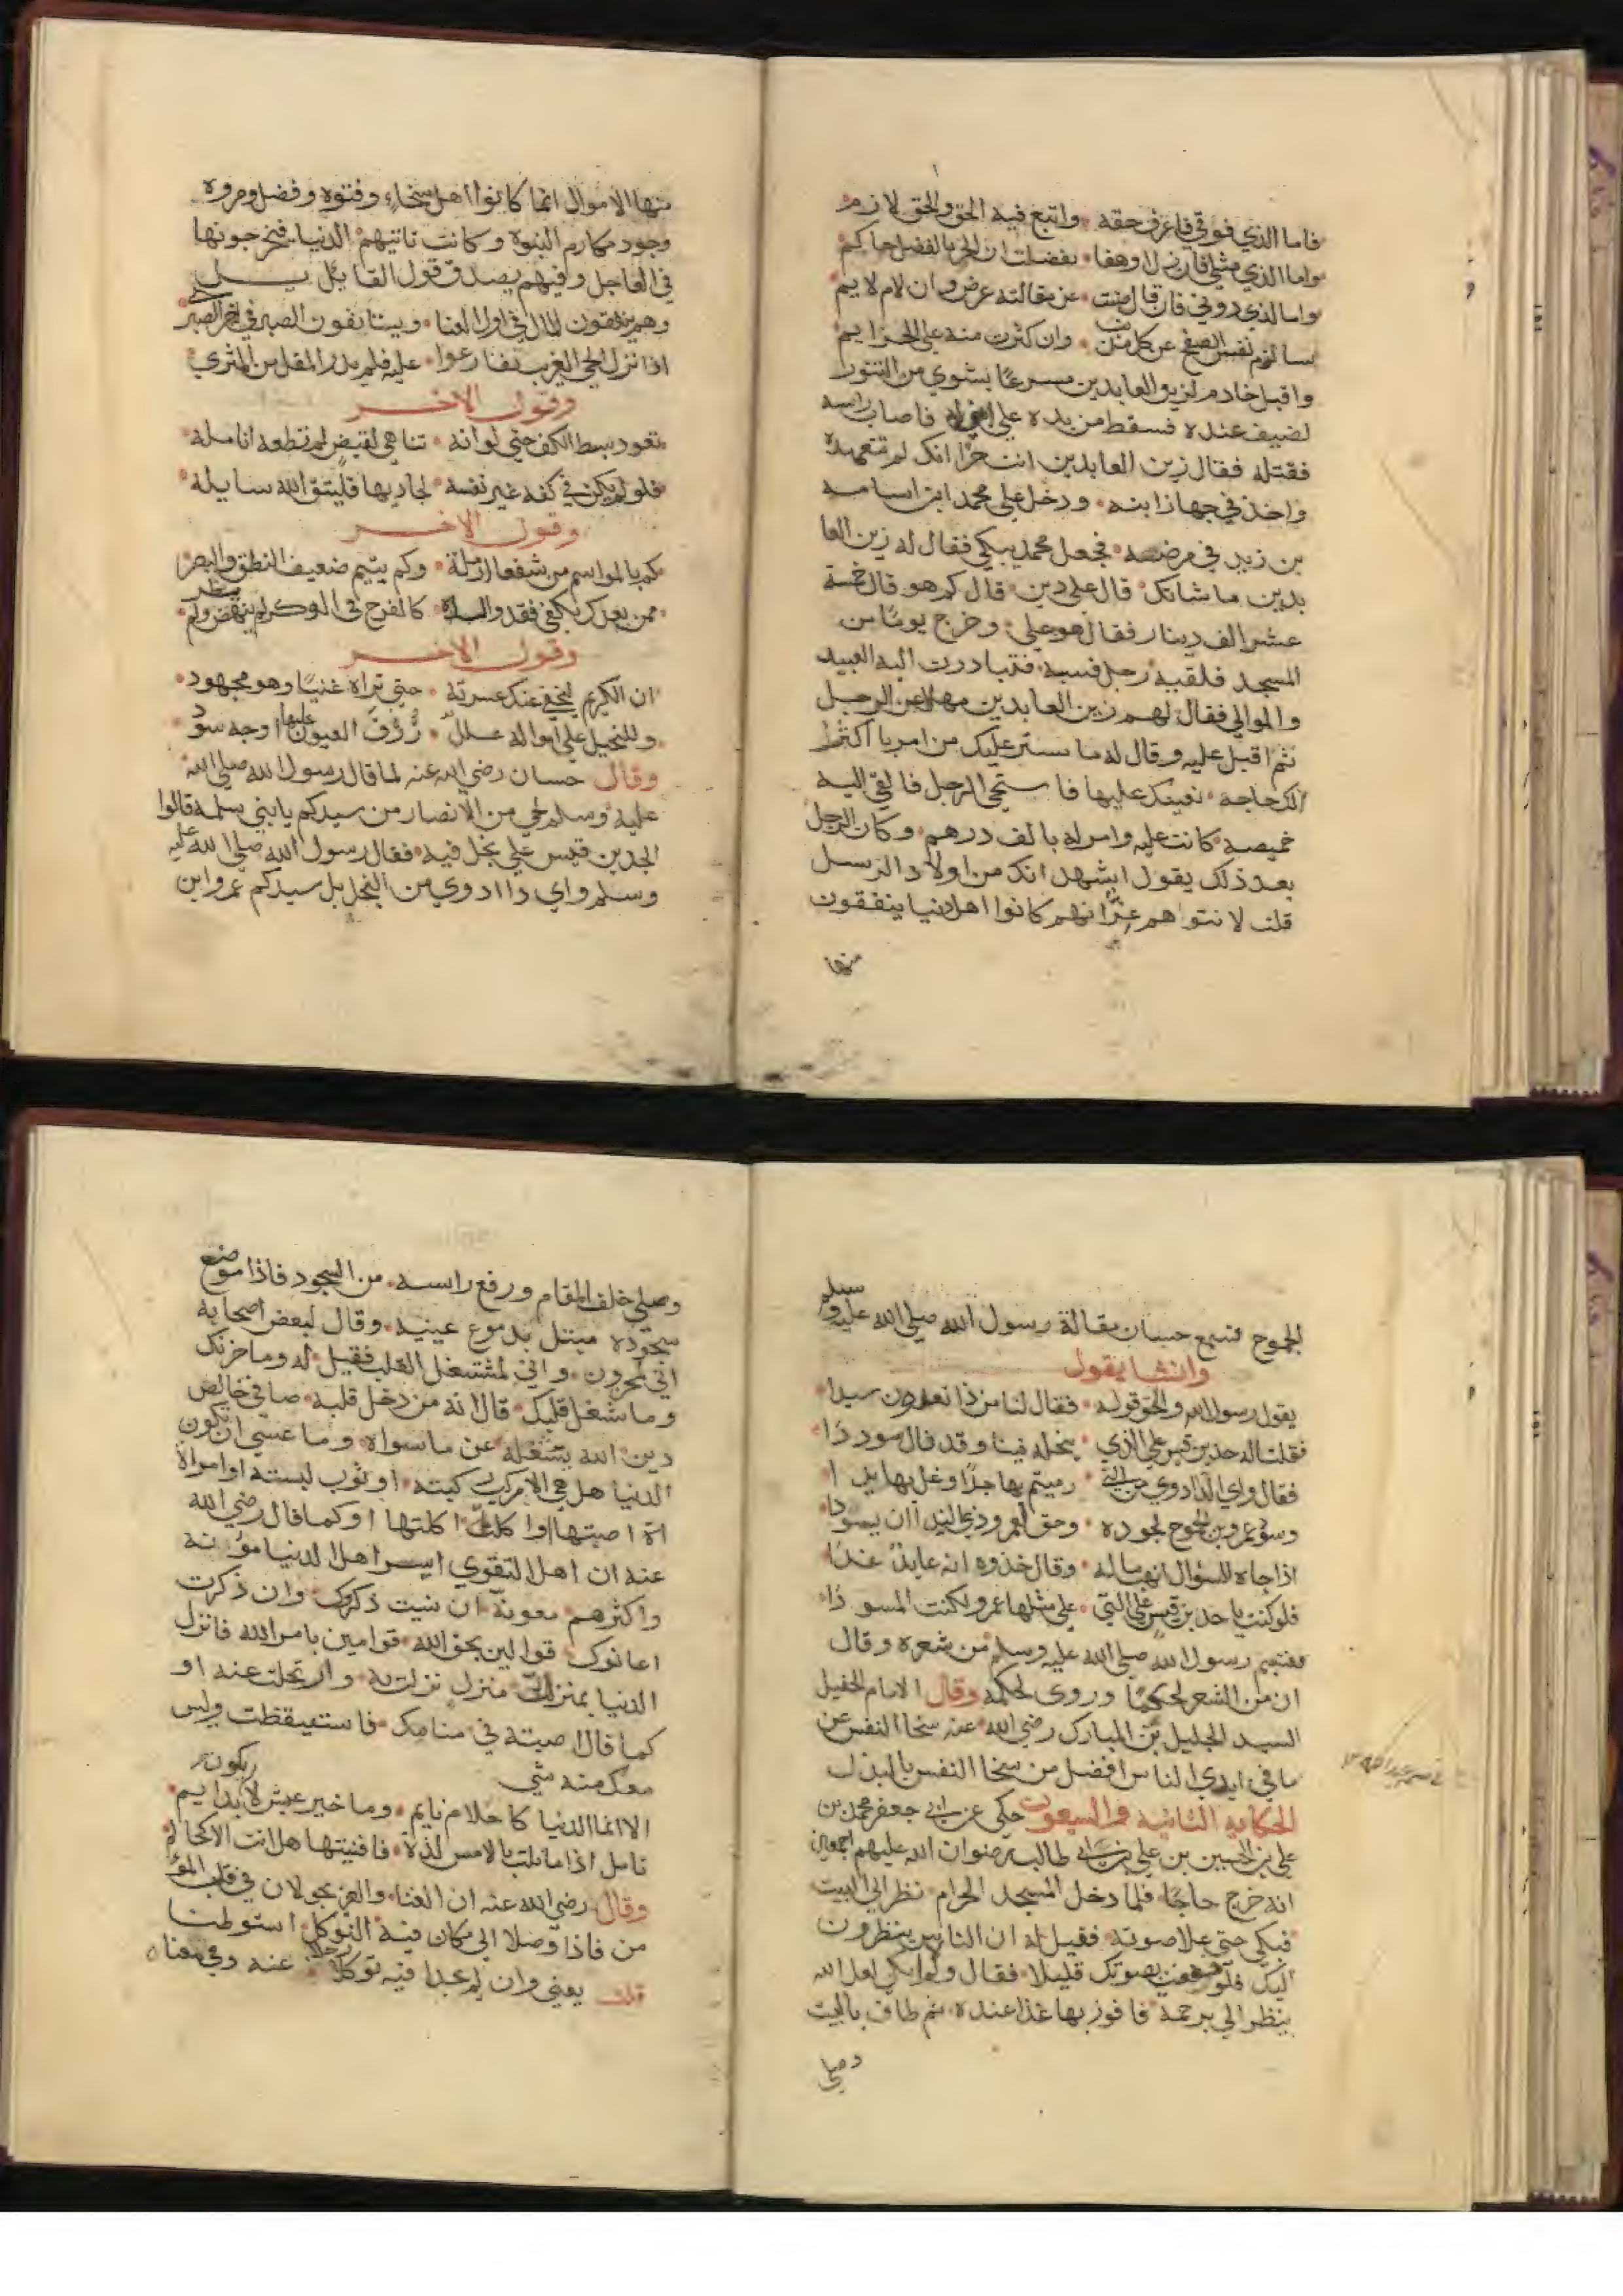 فاما الذي فوقي فاعرف حقه واتبع فيه الحق والحق لازم
واما الذي مثلي فان زل او هفا تفضلت ان الحر بالفضل حاكم
واما الذي دوني فان قال صنت عن مقالته عرضي وان لام لايم
سالزم نفس الصفح عن كل مذنب وان كثرت منه علي الجرايم
واقبل خادم لزين العابدين مسرعًا بشوي من التنور
لضيف عنده فسقط من يده علي ابن له فاصاب راسه
فقتله فقال زين العابدين انت حرًا انك لم تتعمده
واخذ في جهاز ابنه ودخل علي محمد ابن اسامه
بن زيد في مرضه فجعل محمد يبكي فقال له زين العا
بدين ما شانك قال علي دين قال كم هو قال خمسة
عشر الف دينار فقال هو علي وخرج يومًا من
المسجد فلقيه رجل فسبه فتبادرت اليه العبيد
والموالي فقال لهم زين العابدين مهلا عن الرجل
ثم اقبل عليه وقال له ما ستر عليك من امرنا اكثر ا
لك حاجه نعينك عليها فاستحي الرجل فالقي اليه
خميصة كانت عليه وامر له بالف درهم وكان الرجل
بعد ذلك يقول اشهد انك من اولاد الرسل
قلت لا نتواهم غرًا انهم كانوا اهل دنيا ينفقون
منها
منها الاموال انما كانوا اهل سخاء وفتوه وفضل ومروه
وجود مكارم النبوة وكانت تاتيهم الدنيا فيخرجونها
في العاجل وفيهم يصدق قول القايل
وهم ينفقون المال في اول الغنا ويستانفون الصبر في اخر الصبر
اذا نزل الحي الغريب تقارعوا عليه فلم يدر المقل من المثري
وقول الاخر
تعود بسط الكف حتي لو انه تناهي لقبض لم تطعه انامله
فلو لم يكن في كفه غير نفسه لجاد بها فليتق الله سايله
وقول الاخر
كم بالمواسم من شعثا ارملة وكم يتيم ضعيف النطق والبصر
ممن يعدك يكفي فقد والده كالفرخ في الوكر لم ينهض ولم يطر
وقول الاخر
ان الكريم ليخفي عنك عسرته حتي تراه غنيًا وهو مجهود
وللبخيل علي امواله علل زرق العيون عليها اوجه سود
وقال حسان رضي الله عنه لما قال رسول الله صلي الله
عليه وسلم لحي من الانصار من سيدكم يا بني سلمة قالوا
الجد بن قيس علي بخل فيه فقال رسول الله صلي الله عليه
وسلم واي داادوي من البخل بل سيدكم عمرو ابن
الجموح فسمع حسان مقالة رسول الله صلي الله عليه وسلم
وانشا يقول
يقول رسول الله والحق قوله فقال لنا من ذا تعدون سيدا
فقلت له جد بن قيس علي الذي نبخله فينا وقد قال سوددا
فقال واي الدا ادوي من التي رميتم بها جدًا وغل بها يدا
وسود عمرو بن الجموح لجوده وحق لعمرو ذي الندا ان يسودا
اذا جاه السؤال انهب ماله وقال خذوه انه عايد غدا
فلو كنت يا جد بن قيس علي التي علي مثلها عمرو لكنت المسودا
فتبسم رسول الله صلي الله عليه وسلم من شعره وقال
ان من الشعر لحكمًا وروي لحكمة وقال الامام الحفيل
السيد الجليل بن المبارك رضي الله عنه سخا النفس عن
ما في ايدي الناس افضل من سخا النفس بالبذل
الحكاية الثانية والسبعون حكي عن ابي جعفر محمد بن
علي بن الحسين بن علي بن ابي طالب رضوان الله عليهم اجمعين
انه خرج حاجًا فلما دخل المسجد الحرام نظر الي البيت
فبكي حتي علا صوته فقيل له ان الناس ينظرون
اليك فلو رفعت بصوتك قليلا فقال ولم لا ابكي لعل الله
ينظر الي برحمة فافوز بها غدا عنده ثم طاف بالبيت
وصلي
وصلي خلف المقام ورفع راسه من السجود فاذا موضع
سجوده مبتل بدموع عينيه وقال لبعض اصحابه
اني لمحزون واني لمشتغل القلب فقيل له وما حزنك
وما شغل قلبك قال انه من دخل قلبه صافي خالص
دين الله يشغله عن ما سواه وما عسي ان تكون
الدنيا هل هي الا مركب ركبته او ثوب لبسته او امراة
اصبتها او اكلة اكلتها او كما قال رضي الله
عنه ان اهل التقوي ايسر اهل الدنيا مؤنة
واكثرهم معونة ان نسيت ذكروك وان ذكرت
اعانوك قوالين بحق الله قوامين بامر الله فانزل
الدنيا بمنزلة منزل نزلت به وارتحلت عنه او
كما قال اصبته في منامك فاستيقظت وليس
معك منه شي
الا انما الدنيا كاحلام نايم وما خير عيش لا يكون بدايم
تامل اذا ما نلت بالامس لذة فافنيتها هل انت الا كحالم
وقال رضي الله عنه ان الغنا والعز يجولان في قلب المؤ
من فاذا وصلا الي مكان فيه التوكل استوطنا
قلت يعني وان لم يجدا فيه توكلا رحلا عنه وفي معناه